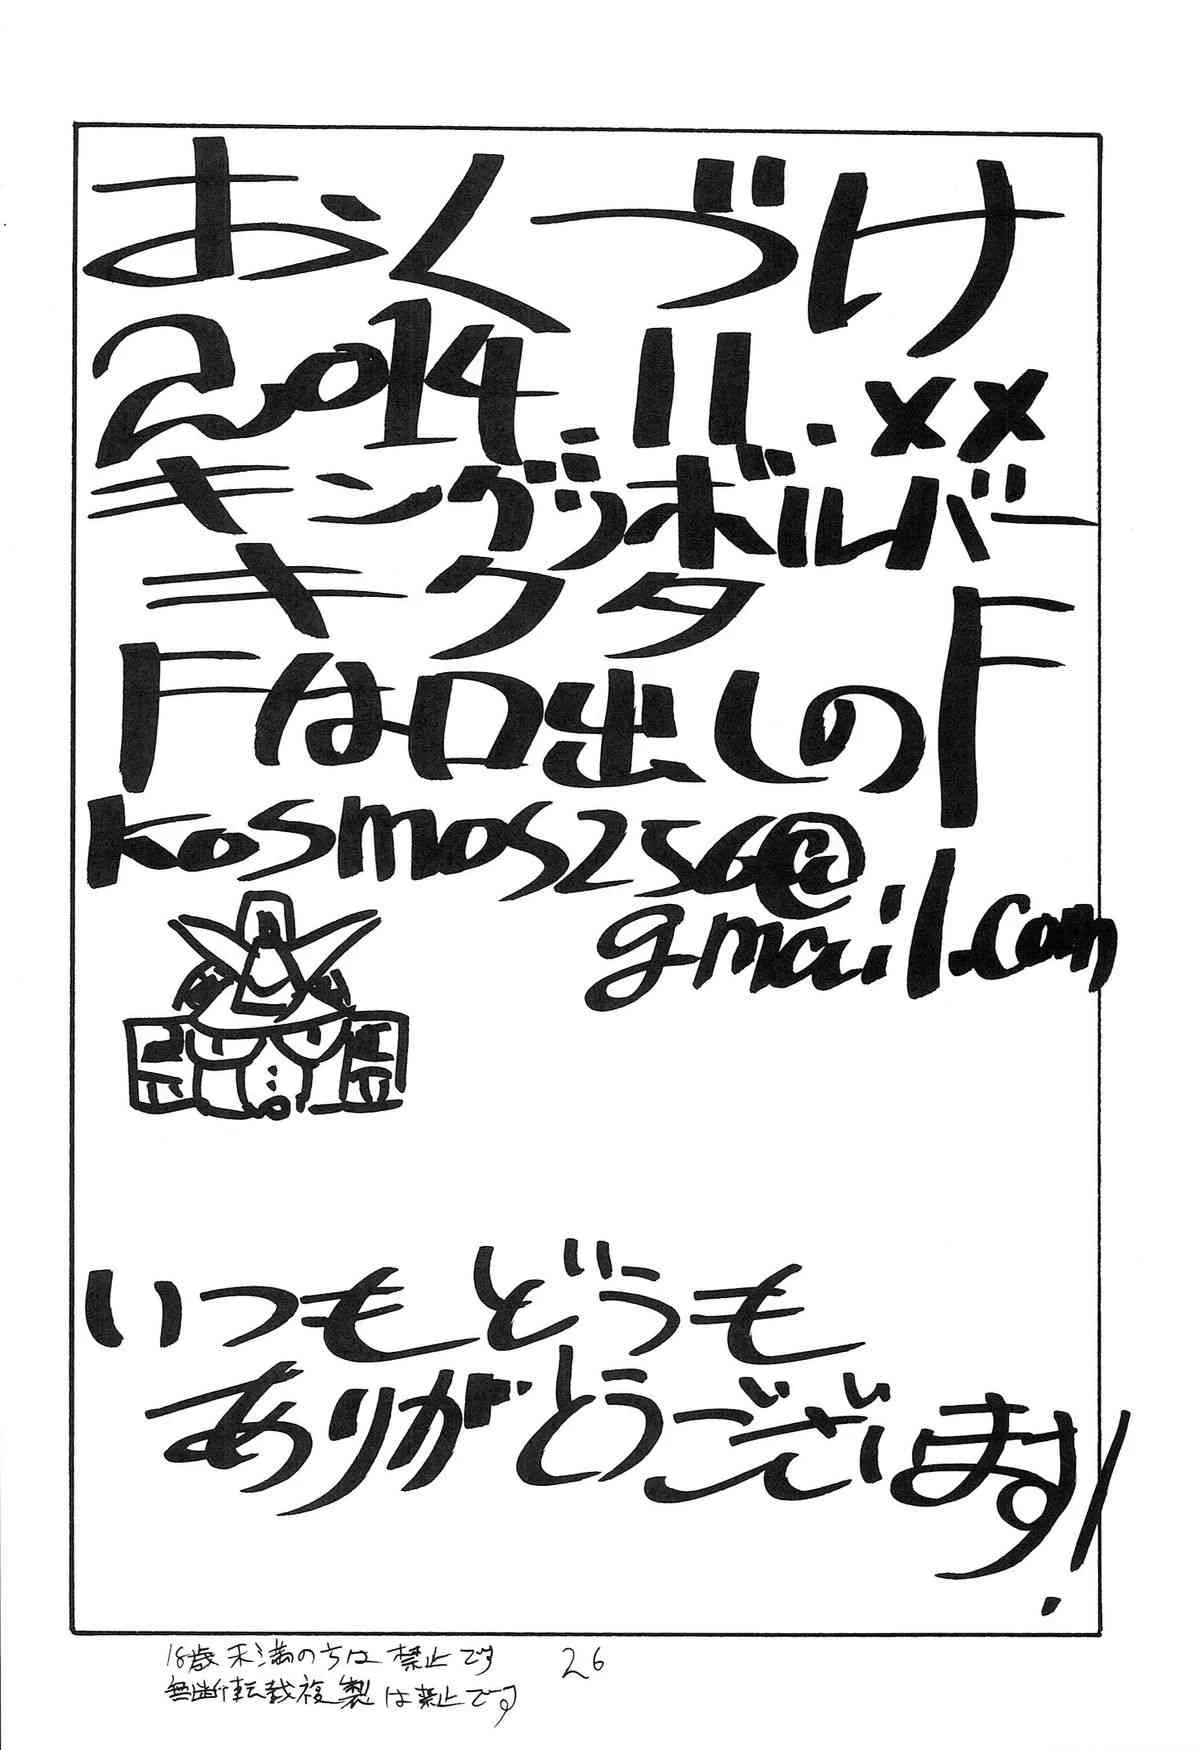 おくづけ
2014 11.××
キングリボルバー
キクタ
Fは口出しのF
kosmos256@
gmail.com
いつもどうも
ありがとうございます!
18歳未満の方は禁止です
無断転載複製は禁止です
26